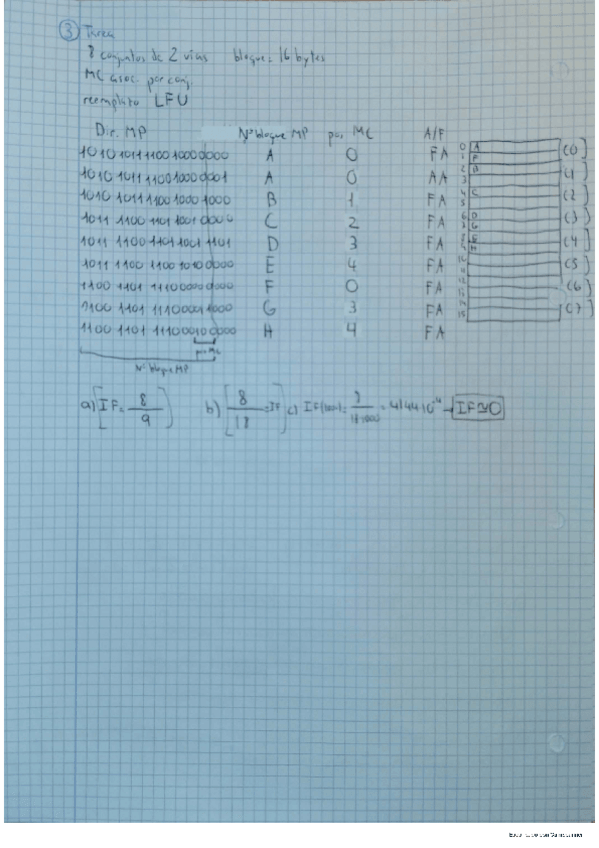 ③ Tarea
8 conjuntos de 2 vias bloque = 16 bytes
MC asoc. por conj.
reemplazo LFU
Dir. MP Nº bloque MP pos MC A/F
1010 1011 1100 1000 0000 A 0 FA
1010 1011 1100 1000 0001 A 0 AA
1010 1011 1100 1001 0000 B 1 FA
1011 1100 1101 1001 C 2 FA
1011 1100 1101 1001 1101 D 3 FA
1011 1100 1100 1010 0000 E 4 FA
1100 1101 1110 0000 F 0 FA
1100 1101 1110 0001 G 3 FA
1100 1101 1110 0010 0000 H 4 FA
pos MC
Nº bloque MP
0 A
1 F C0
2 B
3 C1
4 C
5 C2
6 D
7 G C3
8 E
9 H C4
10
11 C5
12
13 C6
14
15 C7
a) [IF = 8/9] b) [8/18 = IF] c) IF(1000) = → IF ≅ 0